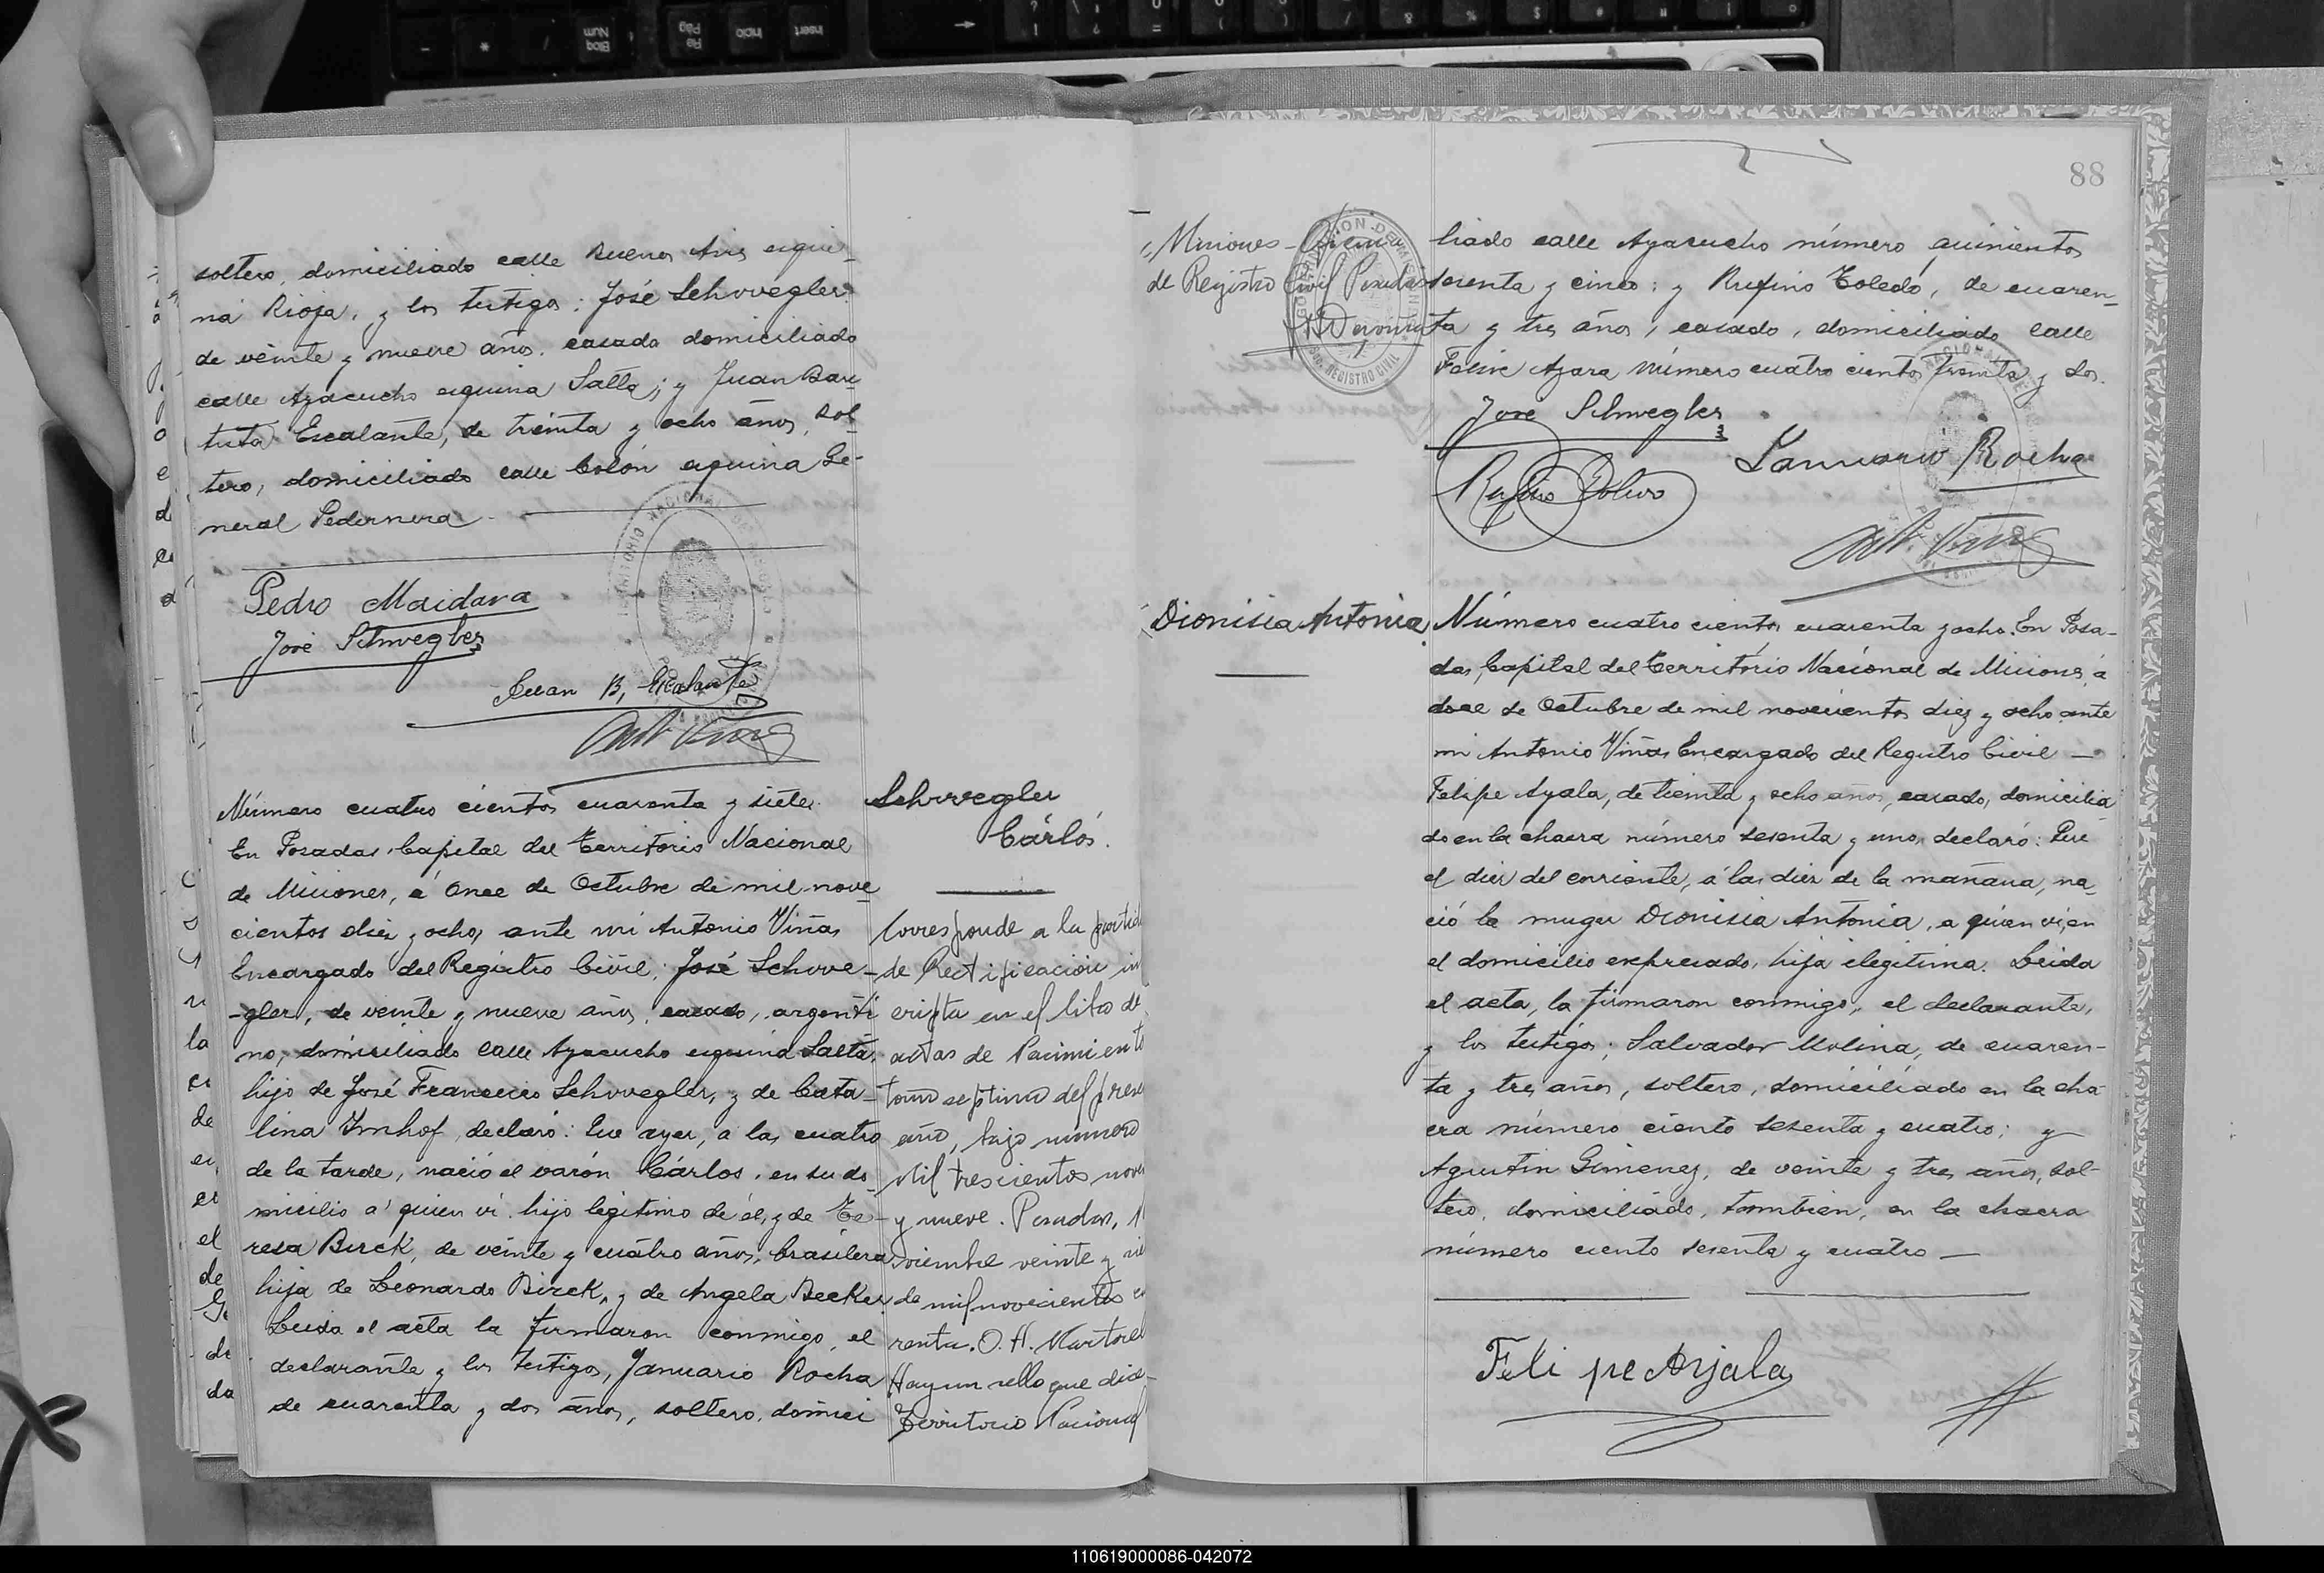 soltero, domiciliado calle Buenos Aires esqui-
na Rioja, y los testigos: José Schvvegler
de veinte y nueve años, casado domiciliado
calle Ayacucho esquina Salta; y Juan Bau
tista Escalante, de treinta y ocho años, sol-
tero, domiciliado calle Colón esquina Ge-
neral Pedernera
Pedro Maidana
José Schwegler
Juan B, Escalante
Número cuatro cientos cuarenta y siete.
En Posadas Capital del Territorio Nacional
de Misiones, á once de Octubre de mil nove
cientos diez y ocho, ante mi Antonio Viñas
Encargado del Registro Civil: José Schvve-
-gler, de veinte y nueve años, casado, argenti
no, domiciliado calle Ayacucho esquina Salta,
hijo de José Francisco Schvvegler, y de Cata-
lina Imhof, declaró: Que ayer, a las cuatro
de la tarde, nació el varón Cárlos, en su do-
micilio a' quien vi. hijo legitimo de él, y de Te-
resa Birck, de veinte y cuátro años, brasilera
hija de Leonardo Birck, y de Angela Becker.
Leida el acta la firmaron conmigo, el
declarante y los testigos, Januario Rocha
de cuarenta y dos años, soltero, domici
Schvvegler
Cárlos.
Corresponde a la partid
de Rectificación in
cripta en el libro de
actas de Nacimiento
tomo septimo del prese
año, bajo numero
Mil trescientos nove
y nueve. Posadas, N
oviembre veinte y
de mil novecientos
renta. O. H. Martorel
Hay un sello que dice-
Territorio Nacional
88
Misiones -
de Registro Civil Posadas
GOBERNACION DE MISIONES
REGISTRO CIVIL
liado calle Ayacucho número quinientos
sesenta y cinco; y Rufino Toledo, de cuaren-
ta y tres años, casado, domiciliado calle
Felix Azara número cuatro cientos treinta y dos.
José Schwegler
Januario Rocha
Rufino Toledo
Dionisia Antonia
Número cuatro cientos cuarenta y ocho. En Posa-
das, Capital del Territorio Nacional de Misiones, á
doce de Octubre de mil novecientos diez y ocho ante
mi Antonio Viñas Encargado del Registro Civil —
Felipe Ayala, de treinta y ocho años, casado, domicilia
do en la chacra número sesenta y uno, declaró: Que
el diez del corriente, á las diez de la mañana, na-
ció la muger Dionisia Antonia, a quien vi, en
el domicilio expresado, hija ilegitima. Leida
el acta, la firmaron conmigo, el declarante,
y los testigos; Salvador Molina, de cuaren-
ta y tres años, soltero, domiciliado en la cha
cra número ciento sesenta y cuatro; y
Agustin Gimenez, de veinte y tres años, sol-
tero, domiciliado, tambien, en la chacra
número ciento sesenta y cuatro —
Feli pe Aŋjala
110619000086-042072